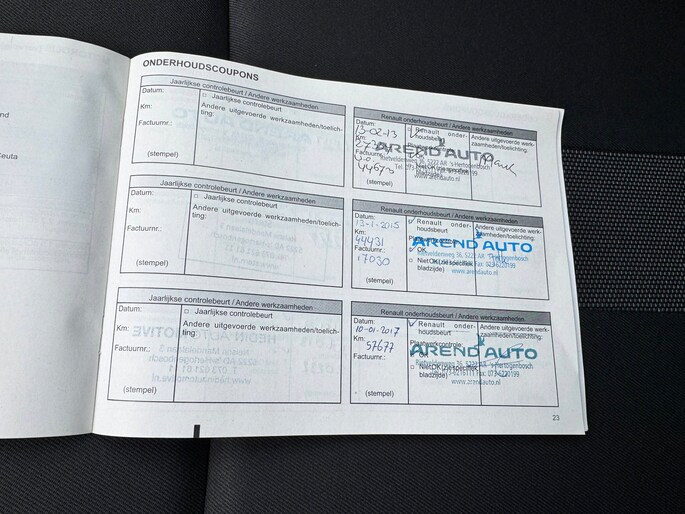 nd
Ceuta
ONDERHOUDSCOUPONS
Jaarlijkse controlebeurt / Andere werkzaamheden
Datum:
Jaarlijkse controlebeurt
Km:
Andere uitgevoerde werkzaamheden/toelichting:
Factuurnr.:
(stempel)
Renault onderhoudsbeurt / Andere werkzaamheden
Datum:
13-02-13
Renault onderhoudsbeurt
Andere uitgevoerde werkzaamheden/toelichting:
Km:
Factuurnr.:
44673
AREND AUTO
Rietveldenweg 36, 5222 AR 's-Hertogenbosch
www.arendauto.nl
(stempel)
Jaarlijkse controlebeurt / Andere werkzaamheden
Datum:
Jaarlijkse controlebeurt
Km:
Andere uitgevoerde werkzaamheden/toelichting:
Factuurnr.:
(stempel)
Renault onderhoudsbeurt / Andere werkzaamheden
Datum:
13-1-2015
Renault onderhoudsbeurt
Andere uitgevoerde werkzaamheden/toelichting:
Km:
44431
Factuurnr.:
17030
AREND AUTO
OK
Rietveldenweg 36, 5222 AR 's-Hertogenbosch
Niet OK (zie specifiek
Fax: 073-6220199
bladzijde)
www.arendauto.nl
(stempel)
Jaarlijkse controlebeurt / Andere werkzaamheden
Datum:
Jaarlijkse controlebeurt
Km:
Andere uitgevoerde werkzaamheden/toelichting:
Factuurnr.:
(stempel)
Renault onderhoudsbeurt / Andere werkzaamheden
Datum:
10-01-2017
Renault onderhoudsbeurt
Andere uitgevoerde werkzaamheden/toelichting:
Km:
57677
Plaatwerkcontrole:
Factuurnr.:
AREND AUTO
Rietveldenweg 36, 5222 AR 's-Hertogenbosch
Niet OK (zie specifiek
Fax: 073-6220199
bladzijde)
www.arendauto.nl
(stempel)
23